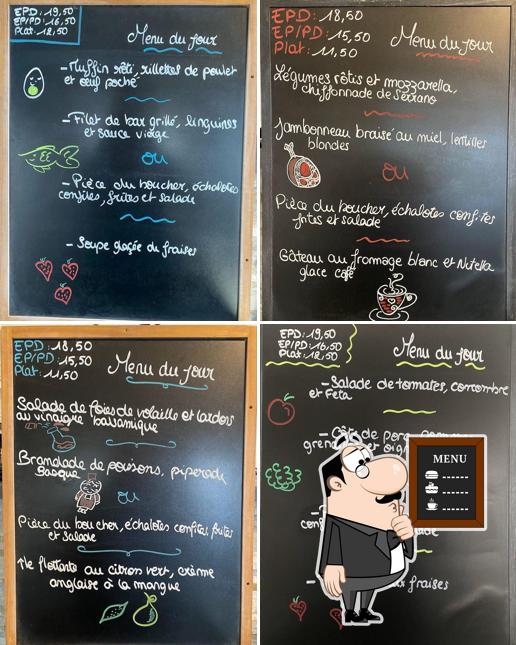 EPD: 19,50
EP/PD: 16,50
Plat: 12,50
Menu du jour
- Muffin rôti, rillettes de poulet
et œuf poché
- Filet de bar grillé, linguines
et sauce vierge
ou
- Pièce du boucher, échalotes
confites, frites et salade
- Soupe glaçée du fraises
EPD: 18,50
EP/PD: 15,50
Plat: 11,50
Menu du jour
Légumes rôtis et mozzarella,
chiffonnade de Serrano
Jambonneau braisé au miel, lentilles
blondes
ou
Pièce du boucher, échalotes confites
frites et salade
Gâteau au fromage blanc et Nutella
glace café
EPD: 18,50
EP/PD: 15,50
Plat: 11,50
Menu du jour
Salade de foies de volaille et lardons
au vinaigre balsamique
Brandade de poissons, piperade
Basque
ou
Pièce du boucher, échalotes confites, frites
et salade
Île flottante au citron vert, crème
anglaise à la mangue
EPD: 19,50
EP/PD: 16,50
Plat: 12,50
Menu du jour
- Salade de tomates, concombre
et Feta
- Côte de porc
MENU
fraises